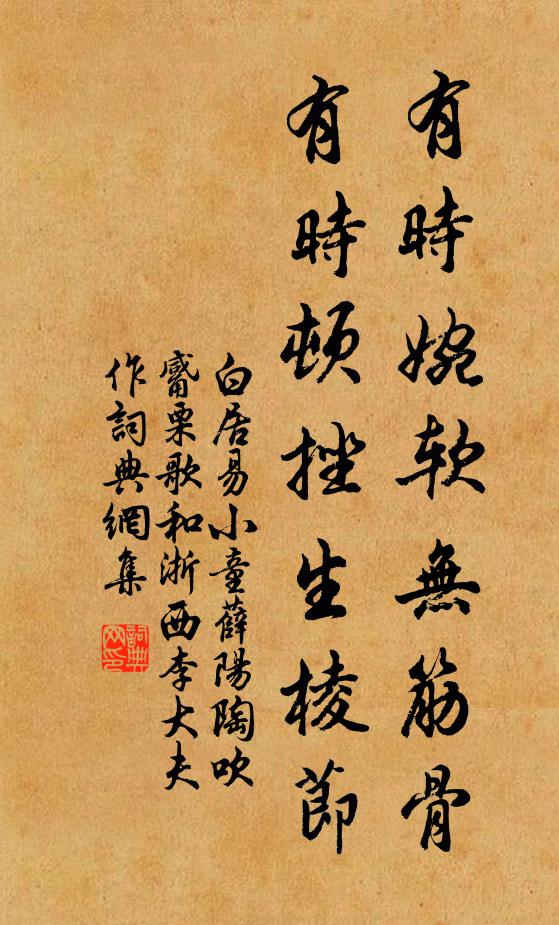 有時婉软無筋骨
有時頓挫生棱節
白居易小童薛陽陶吹
觱栗歌和浙西李大夫
作詞典網集
詞典
网印